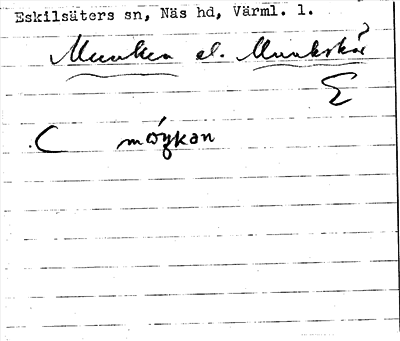 Eskilsäters sn, Näs hd, Värml. l.
Munken el. Munkskär
C mωŋkan